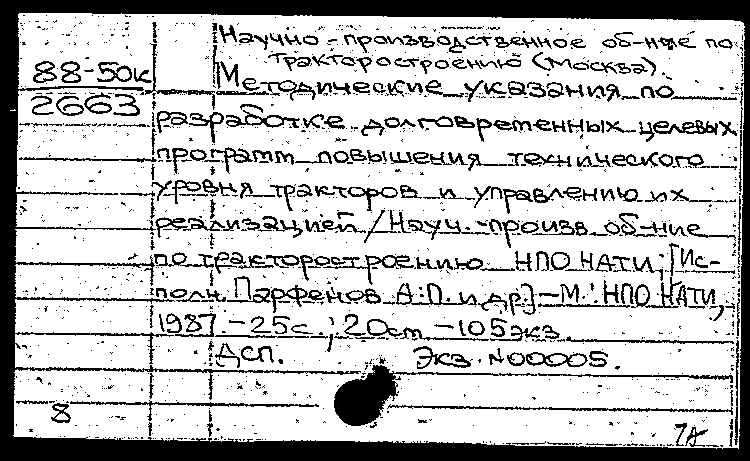 Научно-производственное об-ние по
тракторостроению (Москва).
88-50к
2663
Методические указания по
разработке долговременных целевых
программ повышения технического
уровня тракторов и управлению их
реализацией / Науч.-произв. об-ние
по тракторостроению НПО НАТИ; [Ис-
полн. Парфенов А.П. и др.] – М.: НПО НАТИ,
1987. – 25с.; 20см – 105экз.
Дсп. Экз. №00005.
8